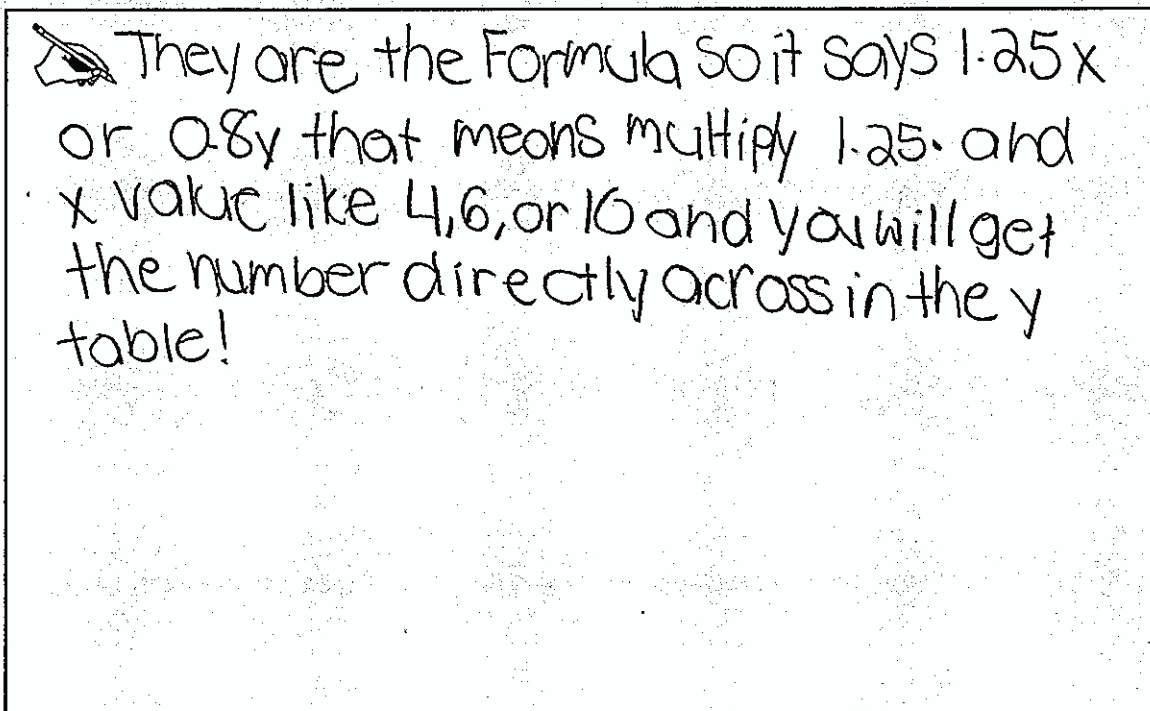 They are the Formula so it says 1.25x
or 0.8y that means multiply 1.25. and
x value like 4,6, or 10 and you will get
the number directly across in the y
table!